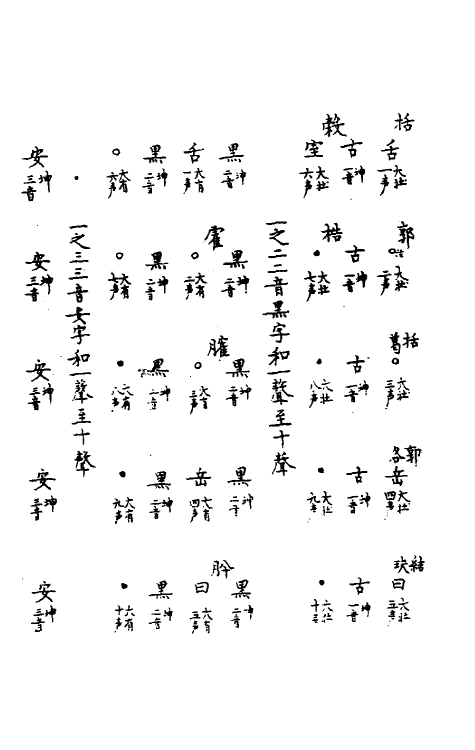 括 郭 括葛 郭各 結玦
舌大壯一声 ○大壯二声 ○大壯三声 岳大壯四声 曰大壯五声
古坤一音 古坤一音 古坤一音 古坤一音 古坤一音
梏
室大壯六声 ●大壯七声 ●大壯八声 ●大壯九声 ●大壯十声
一之二二音黑字和一聲至十聲
黑坤二音 黑坤二音 黑坤二音 黑坤二音 黑坤二音
霍 臛 肸
舌大有一声 ○大有二声 ○大有三声 岳大有四声 曰大有五声
黑坤二音 黑坤二音 黑坤二音 黑坤二音 黑坤二音
○大有六声 ○大有七声 ●大有八声 ●大有九声 ●大有十声
一之三三音安字和一聲至十聲
安坤三音 安坤三音 安坤三音 安坤三音 安坤三音